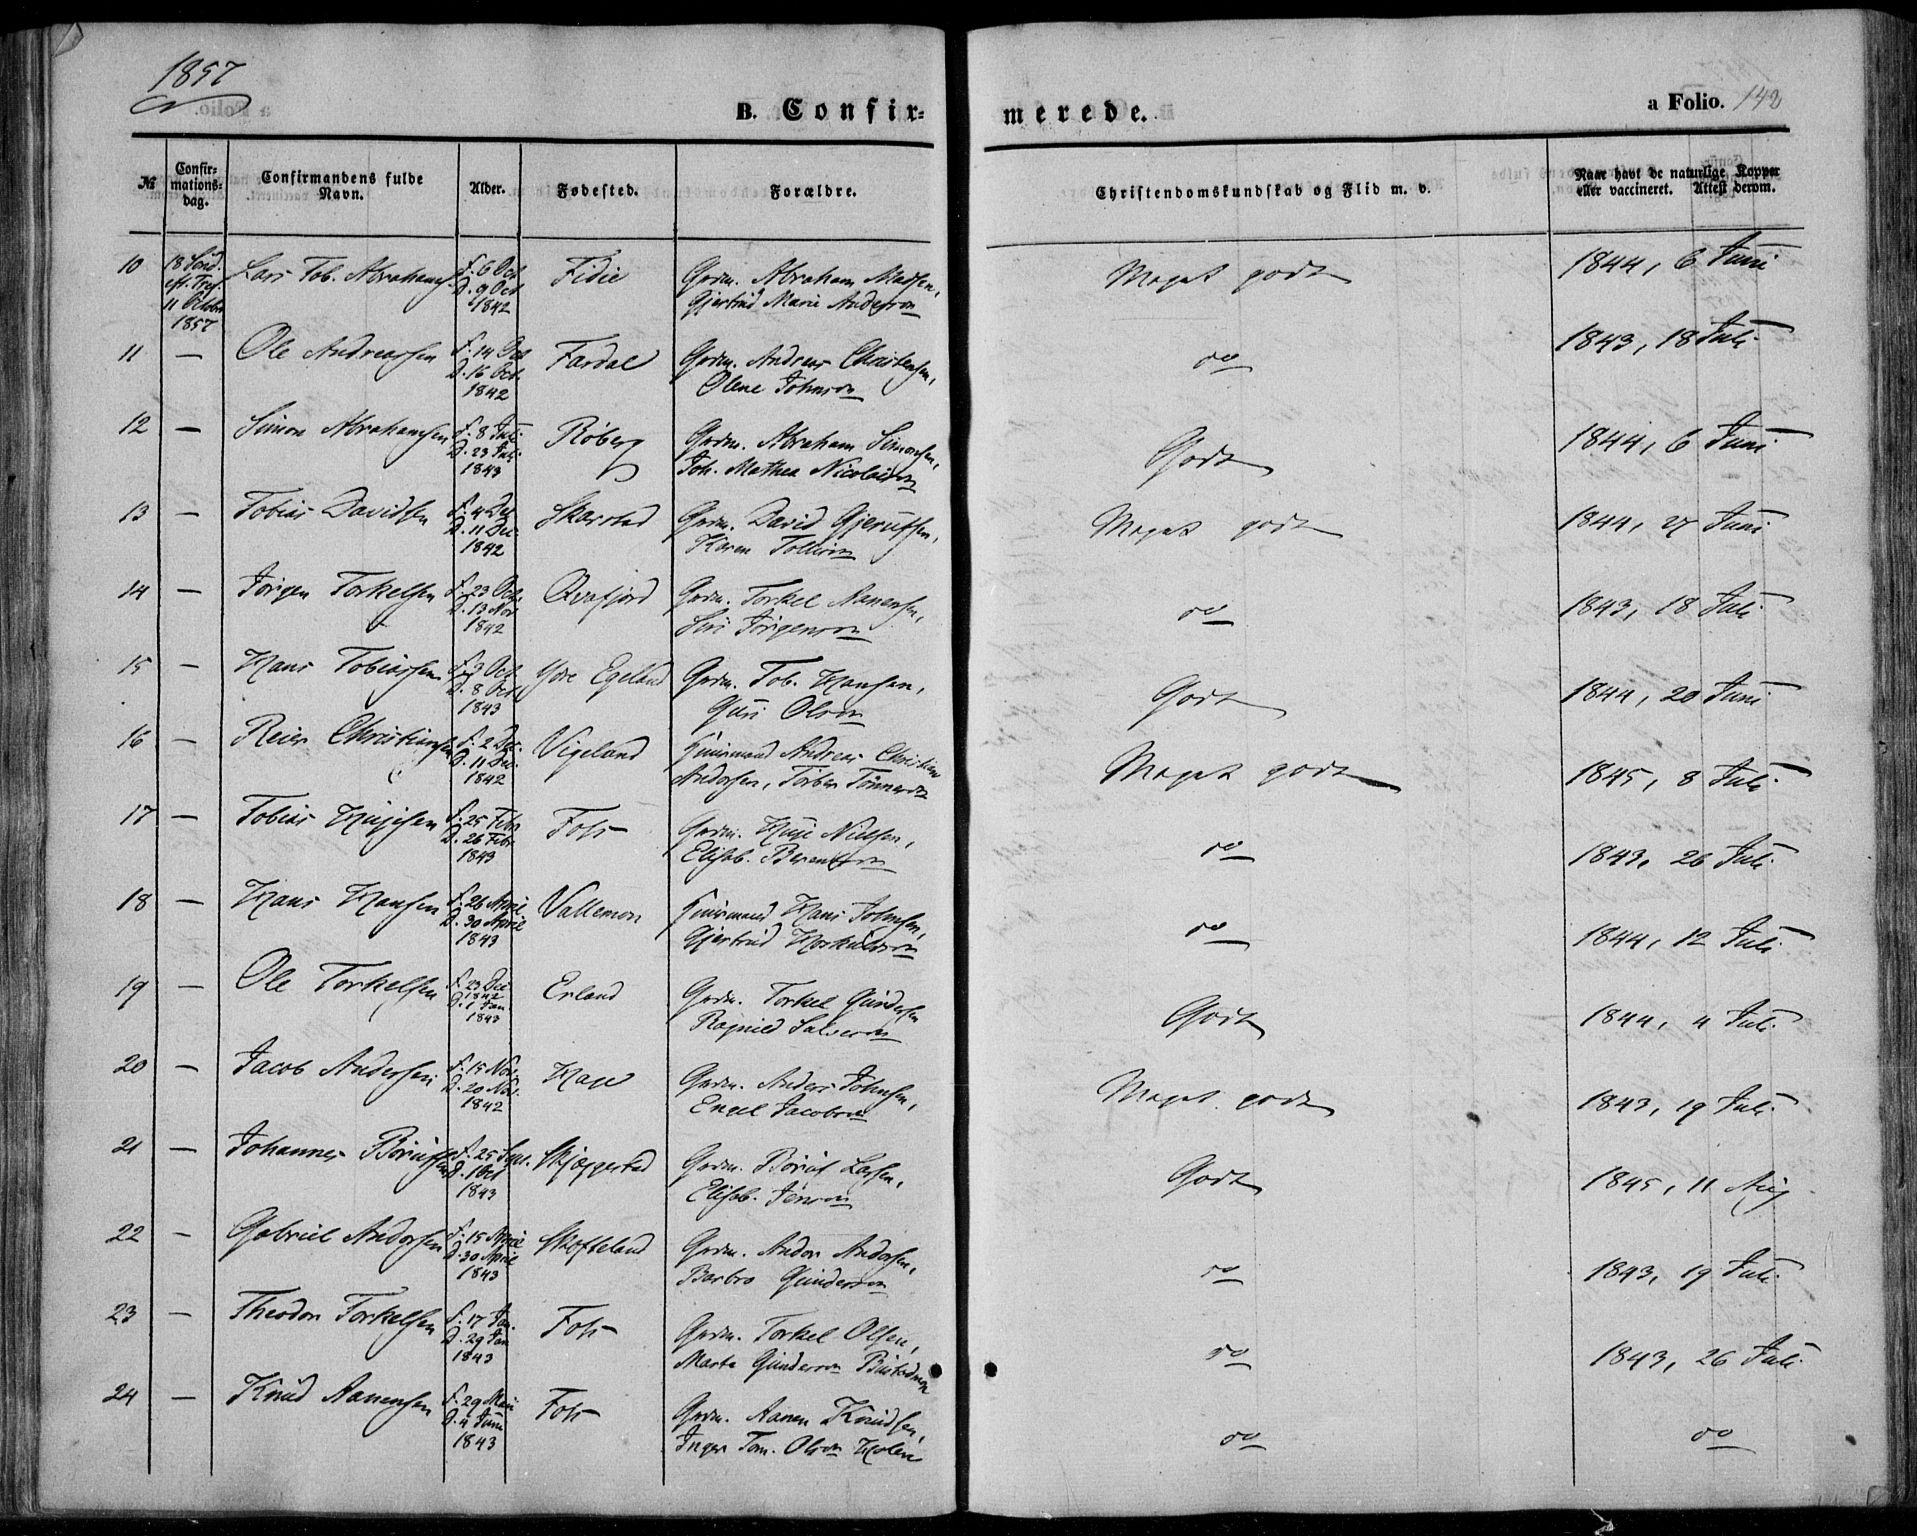 1857
B. Confir-
merede.
a Folio. 142
№
Confir-
mations-
dag.
Confirmandens fulde
Navn.
Alder.
Fødested.
Forældre.
Christendomskundskab og Flid m. v.
Naar havt de naturlige Kopper
eller vaccineret. Attest derom.
10 18 Sønd. Lars Tob. Abrahams. F. 6 Oct Fidie Grdm. Abraham Madsen, Meget godt 1844, 6 Juni
eft. Tref. D. 9 Oct Gjertrud Marie Andersen
11 Octobr 1842
1857
11 — Ole Andreassen F. 14 Oct Fardal Grdm. Andreas Christensen, do 1843, 18 Juli
D. 16 Oct. Olene Johnson
1842
12 — Simon Abrahamsen F. 8 Juli Røberg Grdm. Abraham Simonsen, Godt 1844, 6 Juni
D. 23 Juli Joh. Mathea Nicolaisen
1843
13 — Tobias Davidsen F. 4 Dec Skarstad Grdm. David Gjerulfsen, Meget godt 1844, 27 Juni
D. 11 Dec. Karen
1842
14 — Jørgen Torkelsen F. 23 Oct. Qvafjord Grdm. Torkel Aanensen, do 1843, 18 Juli
D. 13 Nov Siri Jørgensen
1842
15 — Hans Tobiassen F. 3 Oct Ydre Egeland Grdm. Tob. Hansen, Godt 1844, 20 Juni
D. 8 Oct. Guri Olsen
1843
16 — Reier Christiansen F. 2 Dec. Vigeland Huusmand Andreas Christian Meget godt 1845, 8 Juli
D. 11 Dec. Andorsen, Torber Tønnesen
1842
17 — Tobias F. 25 Febr Foss Grdm. Nielsen, do 1843, 26 Juli
D. 26 Febr. Elisab. Berentsen
1843
18 — Hans Hansen F. 26 April Vallemon Huusmand Hans Johnsen, do 1844, 12 Juli
D. 30 April Gjertrud
1843
19 — Ole Torkelsen F. 23 Dec Erland Grdm. Torkel Gundersen Godt 1844, 4 Juli
1842
D. 1 Jan Ragnild Salvesen
1843
20 — Jacob Andersen F. 15 Nov. Hage Grdm. Anders Johnsen, Meget godt 1843, 19 Juli
D. 20 Nov. Engel Jacobsen
1842
21 — Johannes Børufsen F. 25 Sept. Skjæggestad Grdm. Børuf Larsen, Godt 1845, 11 Aug
D. 1 Oct Elisab. Jenson
1843
22 — Gabriel Andorsen F. 15 April Skofteland Grdm. Andor Andorsen, do 1843, 19 Juli
D. 30 April Barbro Gundersen
1843
23 — Theodor Torkelsen F. 17 Jan. Foss Grdm. Torkel Olsen, do 1843, 26 Juli
D. 29 Jan Marte Gundersen
1843
24 — Knud Aanensen F. 29 Mai Foss Grdm. Aanen Knudsen, do do
D. 4 Juni Inger Tom. Olsen Holen
1843